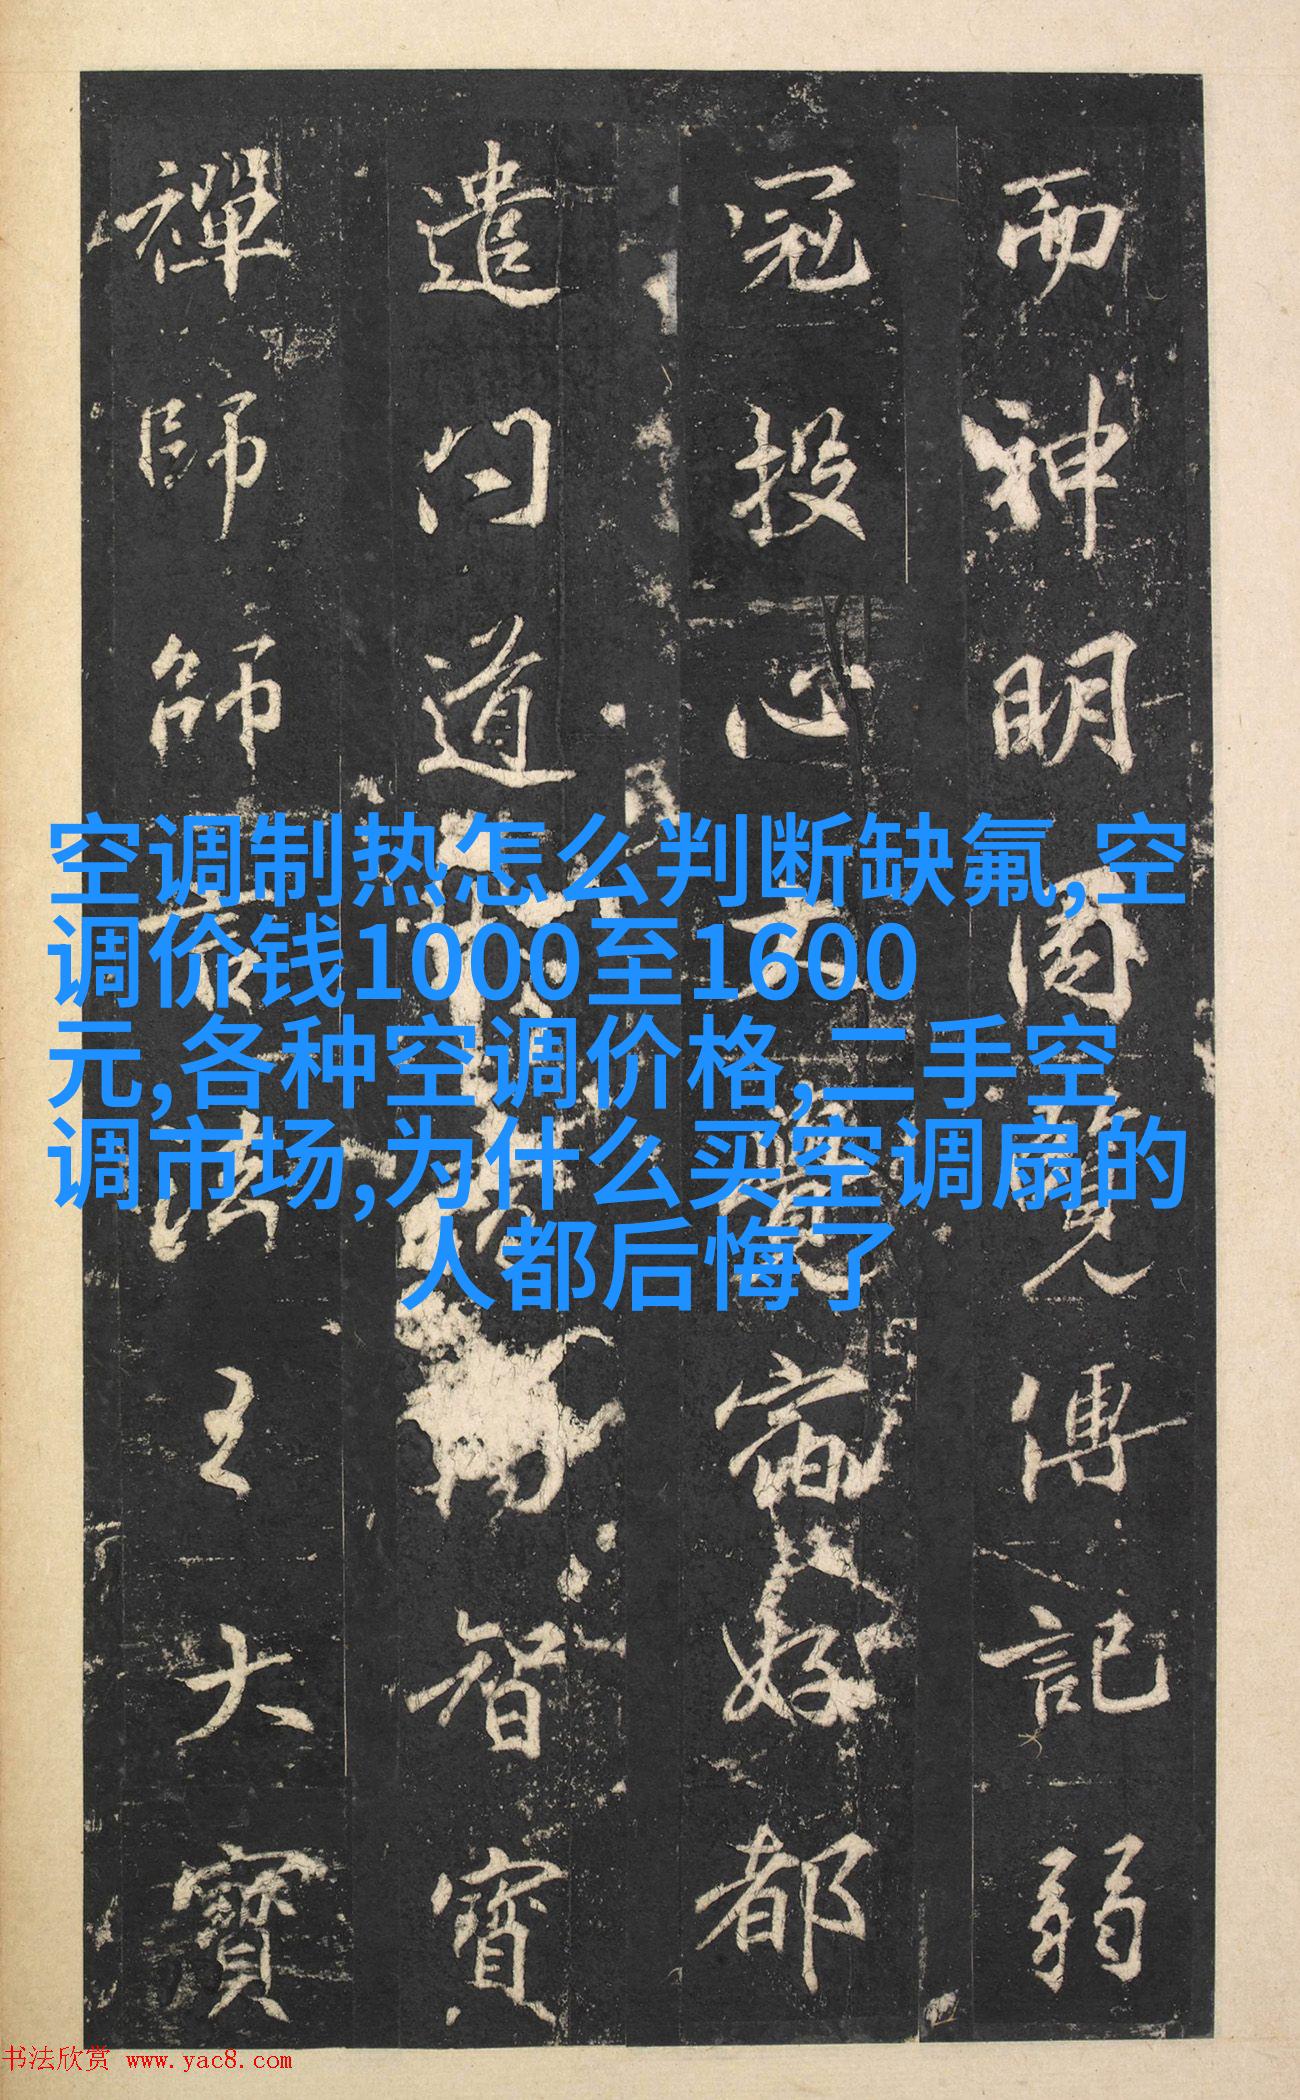 而神明因覽傳記弱
冠投心大覺宿好都
遣問道智寶
禪師師言法王大寶
空调制热怎么判断缺氟,空
调价钱1000至1600
元,各种空调价格,二手空
调市场,为什么买空调扇的
人都后悔了
书法欣赏 www.yac8.com